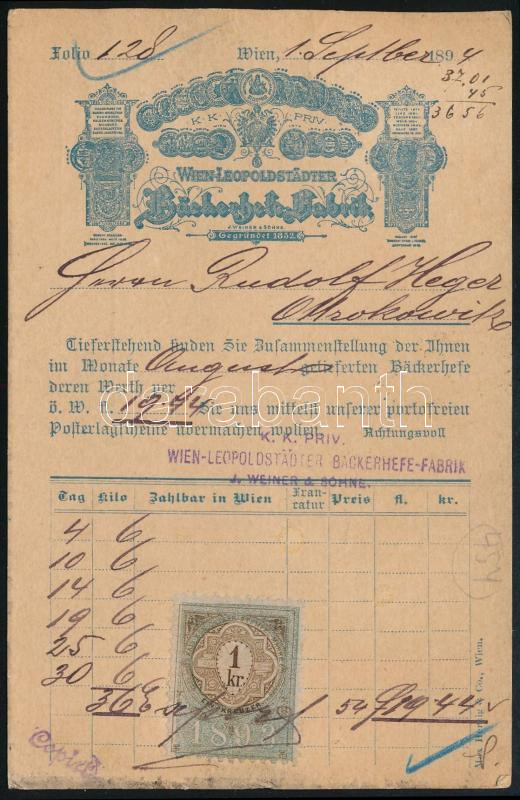 Folio 128 Wien, 1. Septber 1894
37.01
45
3656
K. K. PRIV.
WIEN-LEOPOLDSTÄDTER
Bäckerhefe-Fabrik
J. WEINER & SÖHNE
Gegründet 1852.
Herrn Rudolf Heger
Tieferstehend finden Sie Zusammenstellung der Ihnen
im Monate August gelieferten Bäckerhefe
deren Werth per
ö. W. f. 19.44 Sie uns mittelst unserer portofreien
Posterlagscheine übermachen wollen. Achtungsvoll
K. K. PRIV.
WIEN-LEOPOLDSTÄDTER BÄCKERHEFE-FABRIK
J. WEINER & SÖHNE.
Tag Kilo Zahlbar in Wien Fran-catur Preis fl. kr.
4 6
10 6
14 6
19 6
25 6
30 6
36 54 f 19 44
1
kr.
1893
454
darabanth
Copirt
& Co., Wien.